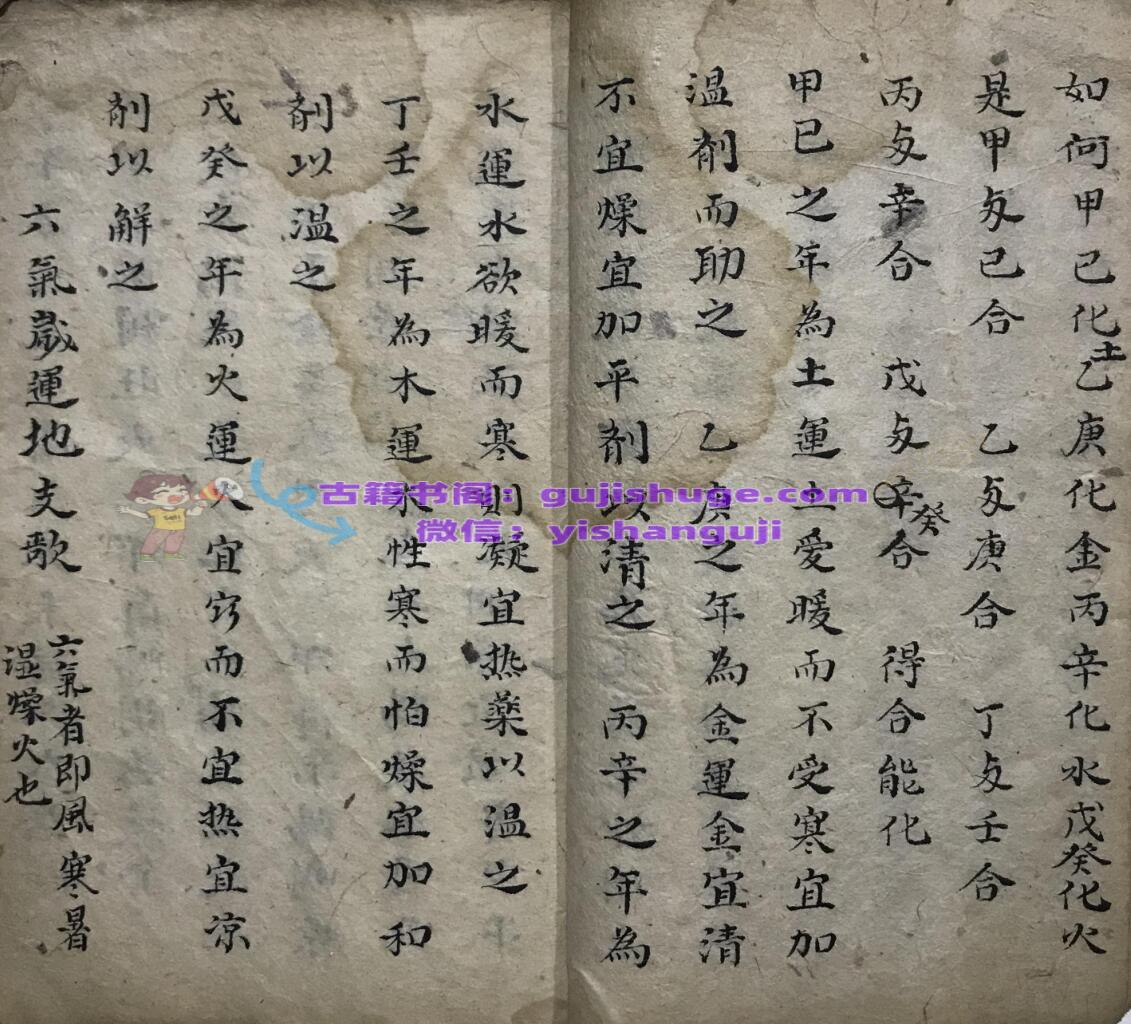 如何甲己化土乙庚化金丙辛化水戊癸化火
是甲与己合 乙与庚合 丁与壬合
丙与辛合 戊与辛癸合 得合能化
甲巳之年為土運土愛暖而不受寒宜加
温剤而助之 乙庚之年為金運金宜清
不宜燥宜加平剤以清之 丙辛之年為
水運水欲暖而寒則凝宜热藥以温之
丁壬之年為木運木性寒而怕燥宜加和
剤以温之
戊癸之年為火運火宜窍而不宜热宜凉
剤以解之
六氣歲運地支歌 六氣者即風寒暑
湿燥火也
古籍书阁：gujishuge.com
微信：yishanguji